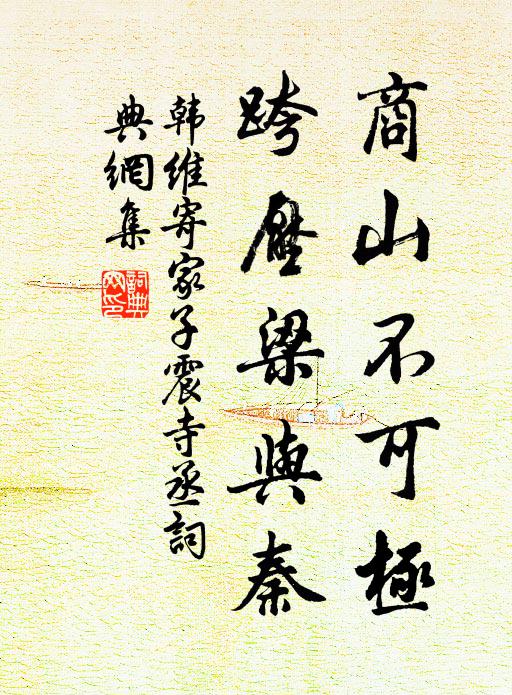 商山不可極
跨壓梁與秦
韩維寄家子震寺丞詞
典網集
詞典
网印